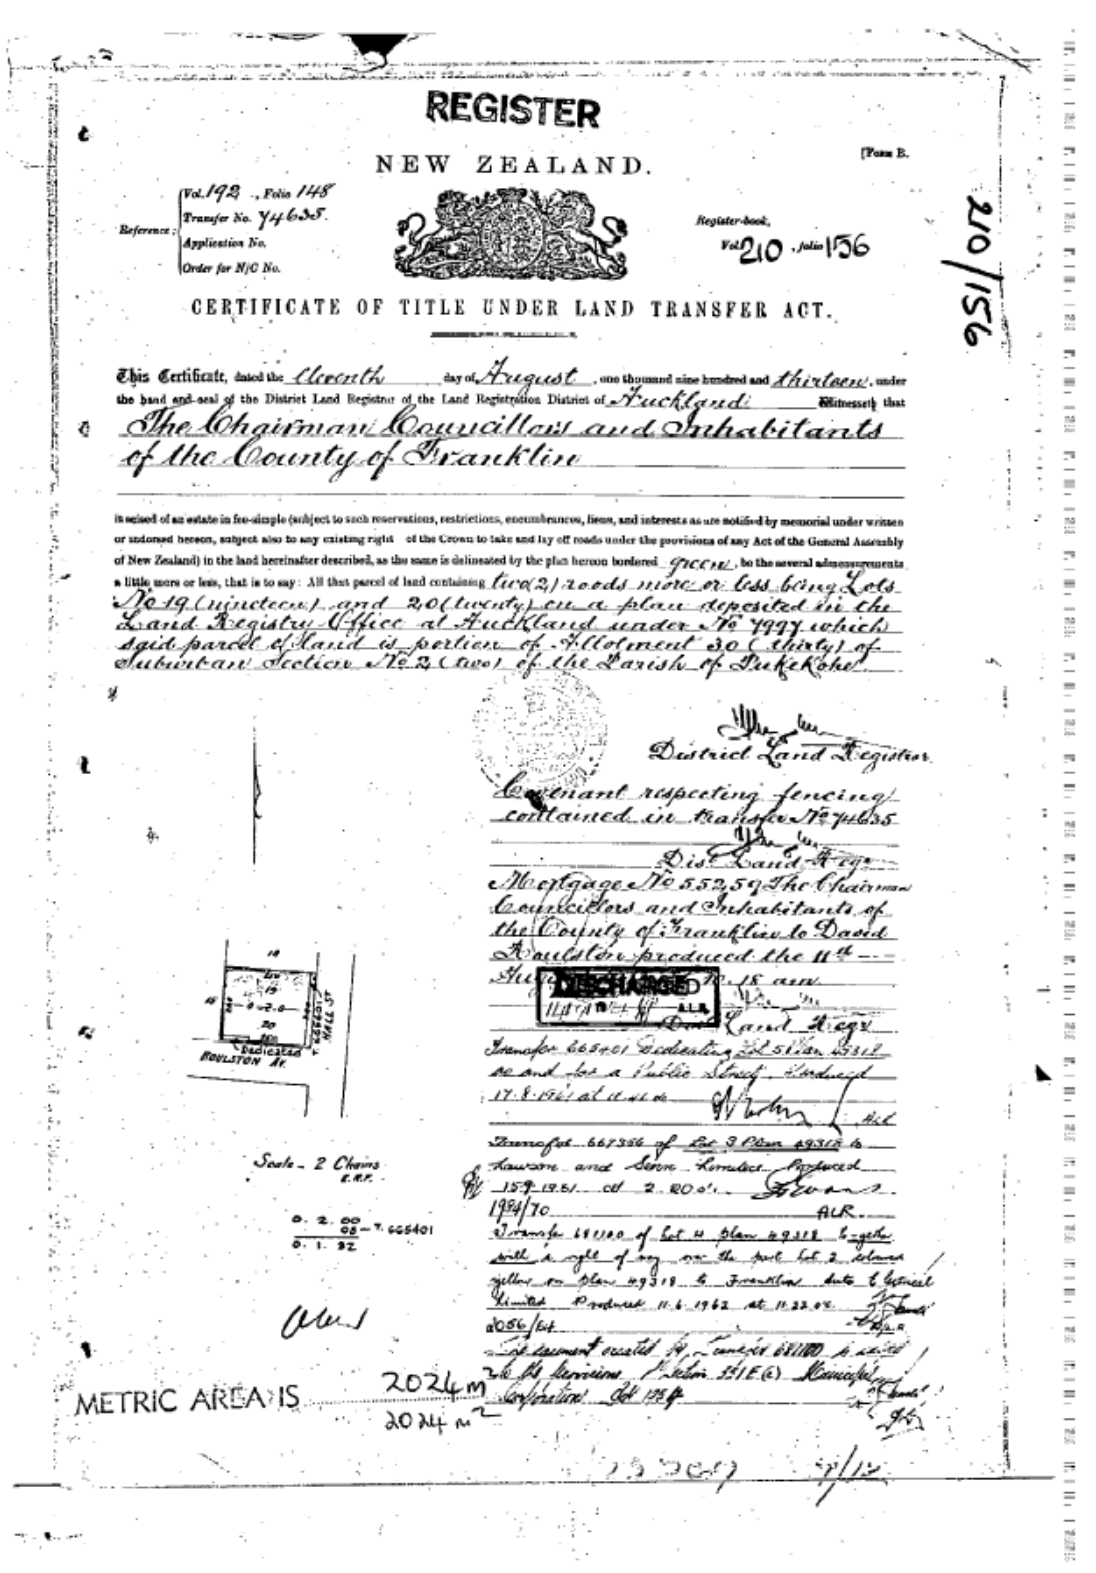 REGISTER
NEW ZEALAND.
[Form B.
Reference:
Vol. 192, Folio 148
Transfer No. 74635.
Application No.
Order for N/C No.
Register-book,
Vol. 210, folio 156
210/156
CERTIFICATE OF TITLE UNDER LAND TRANSFER ACT.
This Certificate, dated the Eleventh day of August, one thousand nine hundred and thirteen, under
the hand and seal of the District Land Registrar of the Land Registration District of Auckland Witnesseth that
The Chairman Councillors and Inhabitants
of the County of Franklin
is seised of an estate in fee-simple (subject to such reservations, restrictions, encumbrances, liens, and interests as are notified by memorial under written
or endorsed hereon, subject also to any existing right of the Crown to take and lay off roads under the provisions of any Act of the General Assembly
of New Zealand) in the land hereinafter described, as the same is delineated by the plan hereon bordered green, be the several admeasurements
a little more or less, that is to say: All that parcel of land containing two (2) roods more or less being Lots
No 19 (nineteen) and 20 (twenty) on a plan deposited in the
Land Registry Office at Auckland under No 7997 which
said parcel of land is portion of Allotment 30 (thirty) of
Suburban Section No 2 (two) of the Parish of Pukekohe.
District Land Registrar.
Covenant respecting fencing
contained in transfer No 74635
Dist Land Regr
Mortgage No 55259 The Chairman
Councillors and Inhabitants of
the County of Franklin to David
Roulston produced the 11th
10.18 am
DISCHARGED
A.L.R.
Dist Land Regr
Transfer 665401 Dedicating Lot 5 Plan 49318
as and for a Public Street. Produced
17.8.1961 at
ALR
Transfer 667356 of Lot 3 Plan 49318 to
Lawson and Limited Produced
15.9.1961 at 2.20
Evans
ALR
1994/70
Transfer 681100 of Lot 4 plan 49318 together
with a right of way over the part Lot 2 coloured
yellow on plan 49318 to Franklin Auto Electrical
Limited Produced 11.6.1962 at 11.22
2056/64
The easement created by Transfer 681100 is subject
to the provisions of Section 351E(a) Municipal
Corporations Act 1954
18
19
0-2-0
20
Dedicated
ROULSTON AV.
T. 665401
HALL ST
Scale - 2 Chains
0. 2. 00
08 - T. 665401
0. 1. 32
METRIC AREA IS 2024 m2
2024 m2